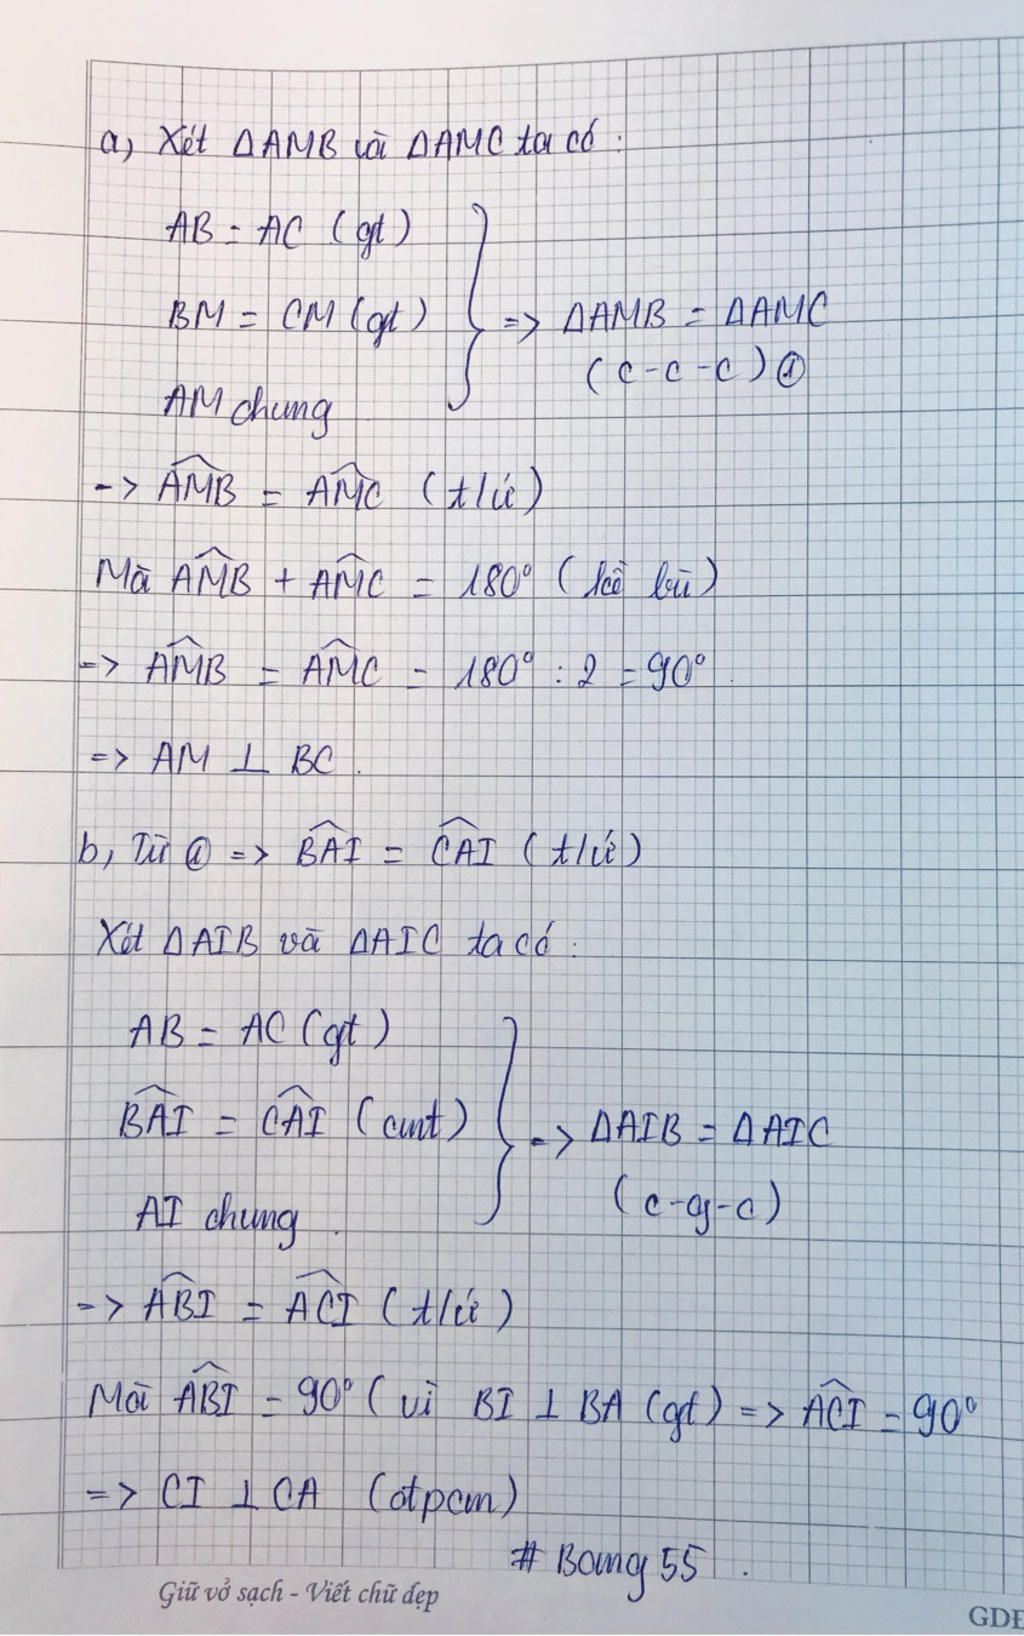 a, Xét ΔAMB và ΔAMC ta có :
AB = AC (gt)
BM = CM (gt) => ΔAMB = ΔAMC
(c-c-c) ①
AM chung
-> \widehat{AMB} = \widehat{AMC} (t/ứ)
Mà \widehat{AMB} + \widehat{AMC} = 180° (kề bù)
=> \widehat{AMB} = \widehat{AMC} = 180° : 2 = 90°
=> AM ⊥ BC.
b, Từ ① => \widehat{BAI} = \widehat{CAI} (t/ứ)
Xét ΔAIB và ΔAIC ta có :
AB = AC (gt)
\widehat{BAI} = \widehat{CAI} (cmt) -> ΔAIB = ΔAIC
(c-g-c)
AI chung.
=> \widehat{ABI} = \widehat{ACI} (t/ứ)
Mà \widehat{ABI} = 90° (vì BI ⊥ BA (gt) => \widehat{ACI} = 90°
=> CI ⊥ CA (đtpcm)
# Bang 55.
Giữ vở sạch - Viết chữ đẹp